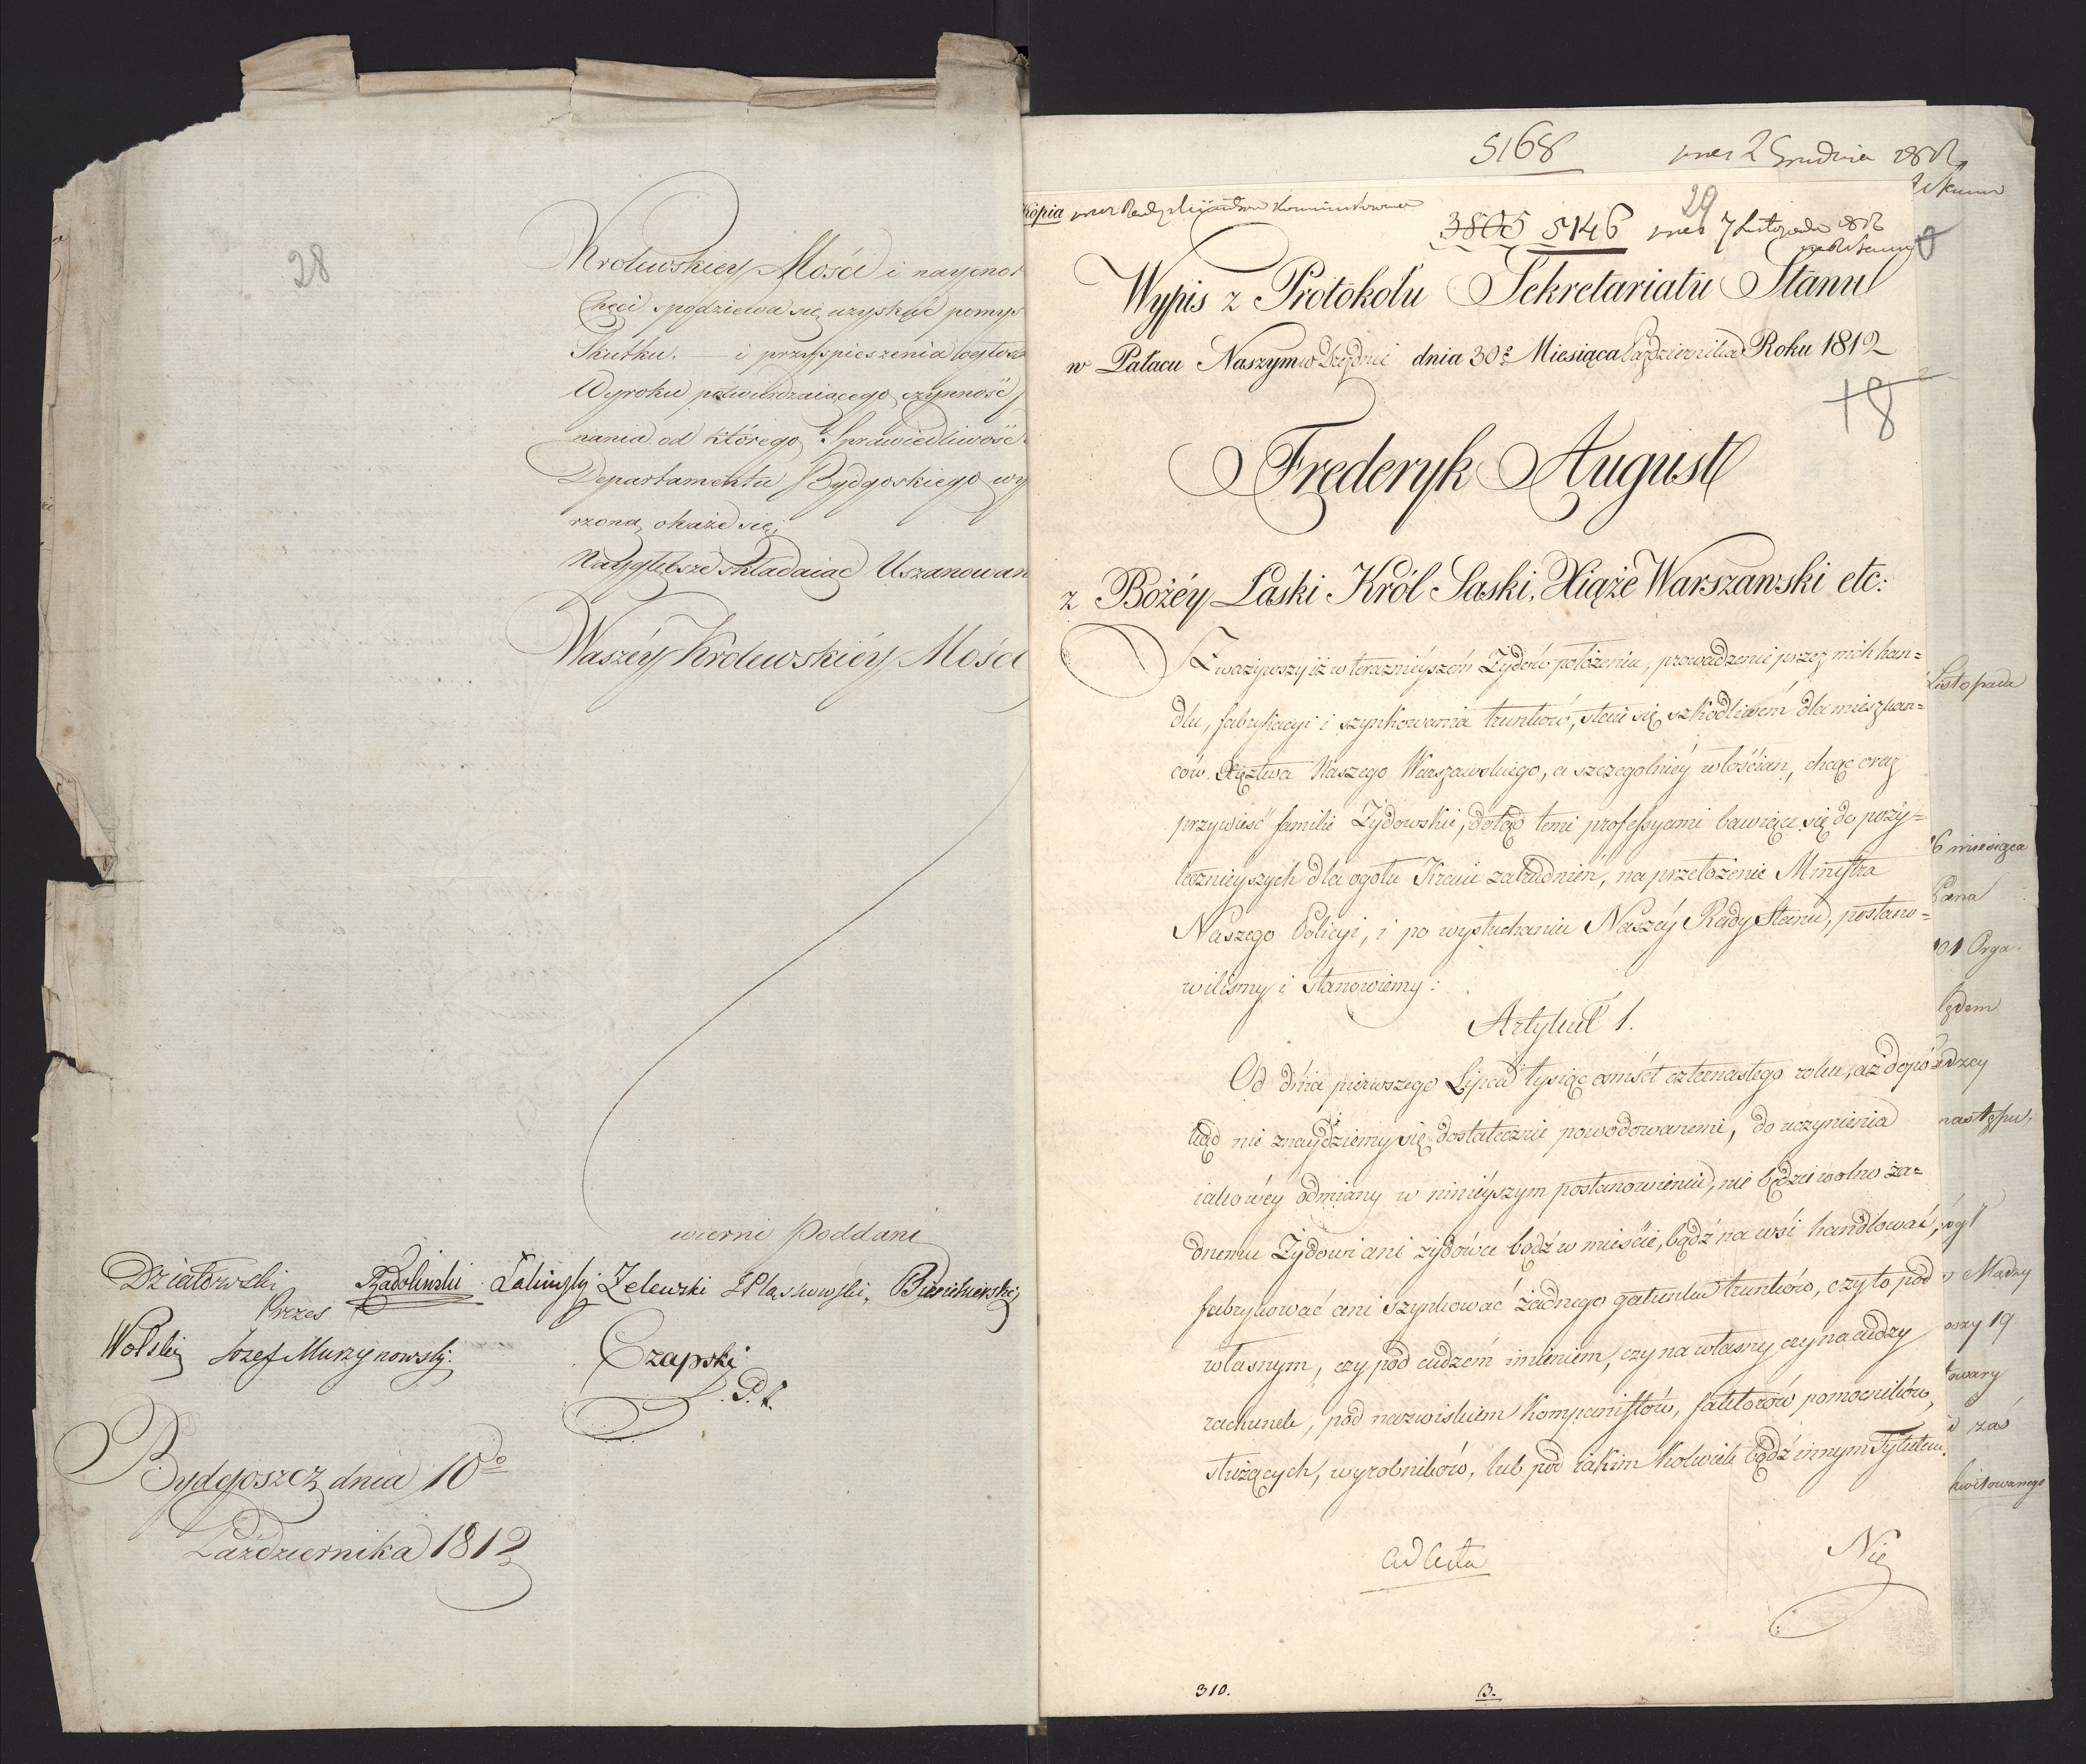 28
Krolewskiey Mości i naypnor
Chęci spodziewa się uzyskać pomyś
Skutku. — i przyspieszenia
Wyroku potwierdzaiącego czynność
nania od którego Sprawiedliwość
Departamentu Bydgoskiego wy
rzona okaże się,
Nayglębsze składaiąc Uszanowan
Waszéy Krolewskiéy Mości
wierni Poddani
Działowski Radolinski Zelewski
Prezes
Wolski Jozef Murzynowski.
Czapski
P. S.
Bydgoszcz dnia 10º
Października 1812
5168 2 Grudnia
Kopia
29
3805 5146 7 Listopada
Wypis z Protokołu Sekretariatu Stanu
w Pałacu Naszym w Dreźnie dnia 30º Miesiąca Października Roku 1812
+8
Frederyk August
z Bożéy Łaski Król Saski, Xiąże Warszawski etc:
Zważywszy iż w teraznieyszém Żydów położeniu, prowadzenie przez nich han=
dlu, fabrykacyi i szynkowania trunków, staie się szkodliwém dla mieszkań=
ców Xięztwa Naszego Warszawskiego, a szczególniéy włościan, chcąc oraz
przywieść familie Żydowskie, dotąd temi professyami bawiące się do poży=
tecznieyszych dla ogółu Kraiu zatrudnień, na przełożenie Ministra
Naszego Policyi, i po wysłuchaniu Naszéy Rady Stanu, postano=
wiliśmy i stanowiemy:
Artykuł 1.
Od dnia pierwszego Lipca tysiąc ośmset czternastego roku, aż dopó=
kąd nie znaydziemy się dostatecznie powodowanemi, do uczynienia
iakowéy odmiany w ninieyszym postanowieniu, nie będzie wolno ża=
dnemu Żydowi ani żydówce bądź w mieście, bądź na wsi handlować,
fabrykować ani szynkować żadnego gatunku trunków, czy to pod
własnym, czy pod cudzém imieniem, czy na własny czy na cudzy
rachunek, pod nazwiskiem kompanistów, faktorów pomocników,
służących, wyrobników, lub pod iakim kolwiek bądź innym Tytułem.
ad acta
Nie
310. B.
Listopada
6 miesiąca
Pana
Orga
lędem
dzcy
następu,
19
towary
zaś
kwitowanego